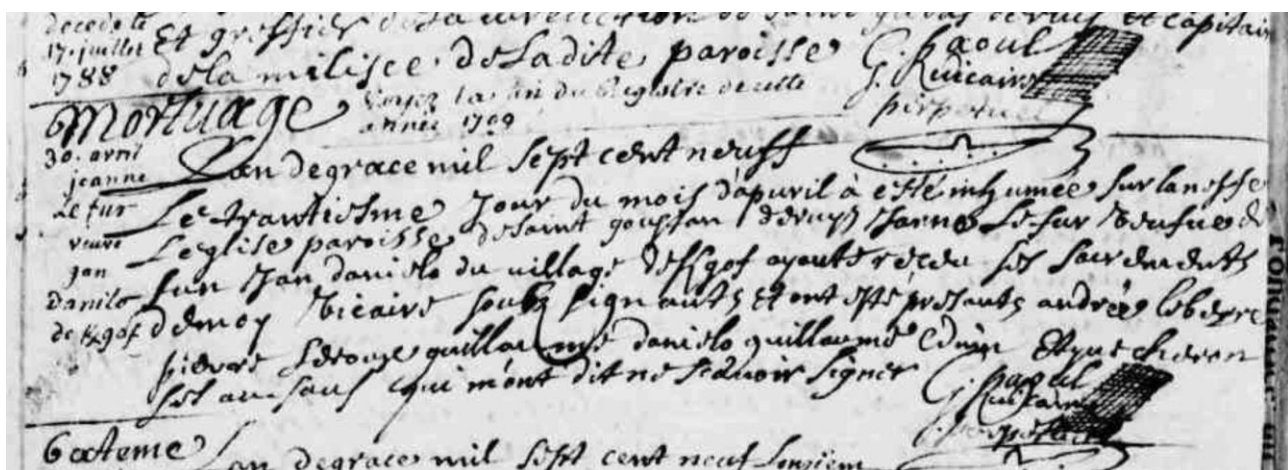 decedé le
17. juillet
1788
Et greffier de la jurediction de saint gildas de ruis Et capitain
de la milisce de la dite paroisse G. Raoul
G. Raoul Vicaire
perpetuel
Mortuage Voyez la fin du Registre de cette
année 1709
30. avril
jeanne
Le fur
veuve
jan
danilo
de kgof
L'an de grace mil sept cent neuff
Le trantiesme Jour du mois d'apuril à esté inhumée sur la
L'eglise paroisse de saint goustan de ruys Janne Le fur veufue de
fun Jan danielo du village de kgof ayant réceu ses sacrements
de moy vicaire soubz signants Et ont esté présants andrée
pierre guillaume danielo guillaume Eduin Et
qui m'ont dit ne sçauoir signer G. Raoul
Vicaire
perpetuel
Bateme L'an de grace mil sept cent neuf